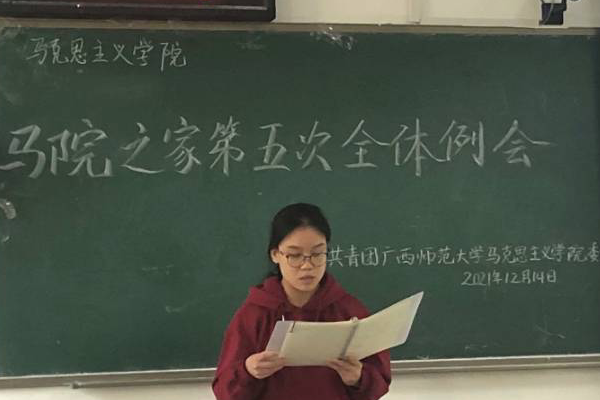 马克思主义学院
马院之家第五次全体例会
共青团广西师范大学马克思主义学院委
2021年12月14日